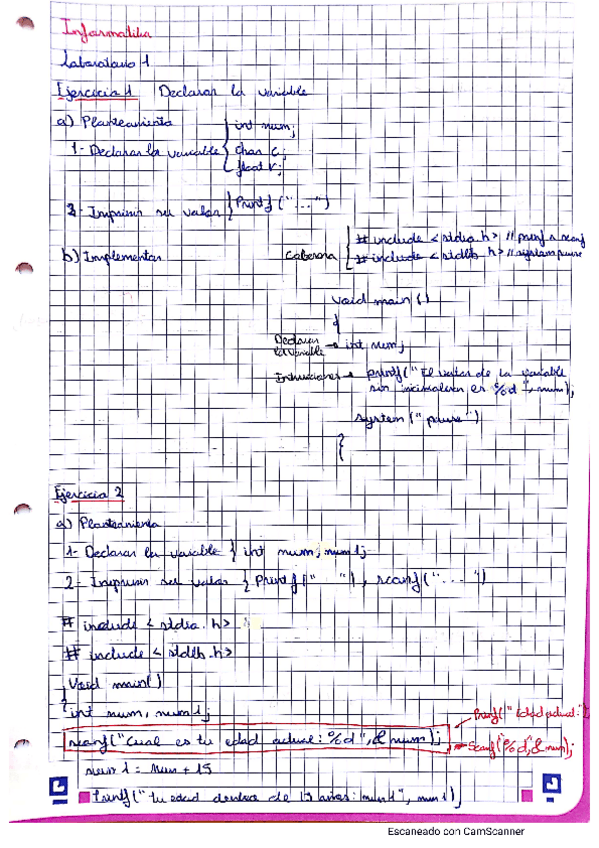 Informatika
Laboratorio 1
Ejercicio 1 Declarar la variable
a) Planteamiento
1- Declarar la variable { int num;
char c;
float r;
2- Imprimir su valor } Printf ("...")
b) Implementar
Cabecera
# include < stdio.h> // printf a scanf
# include < stdlib.h> // system pause
void main ()
{
Declarar la variable → int num;
Instrucciones → printf("El valor de la variable
sin inicializar es %d", num);
system ("pause")
}
Ejercicio 2
a) Planteamiento
1- Declarar la variable } int num, num1;
2- Imprimir su valor } Printf (" "), scanf("...")
# include < stdio.h>
# include < stdlib.h>
Void main()
{
int num, num1;
scanf("Cual es tu edad actual: %d", & num);
Printf(" Edad actual:"
Scanf("%d",& num);
num1 = num + 15
Printf("tu edad dentro de 15 años: num1", num1)
Escaneado con CamScanner